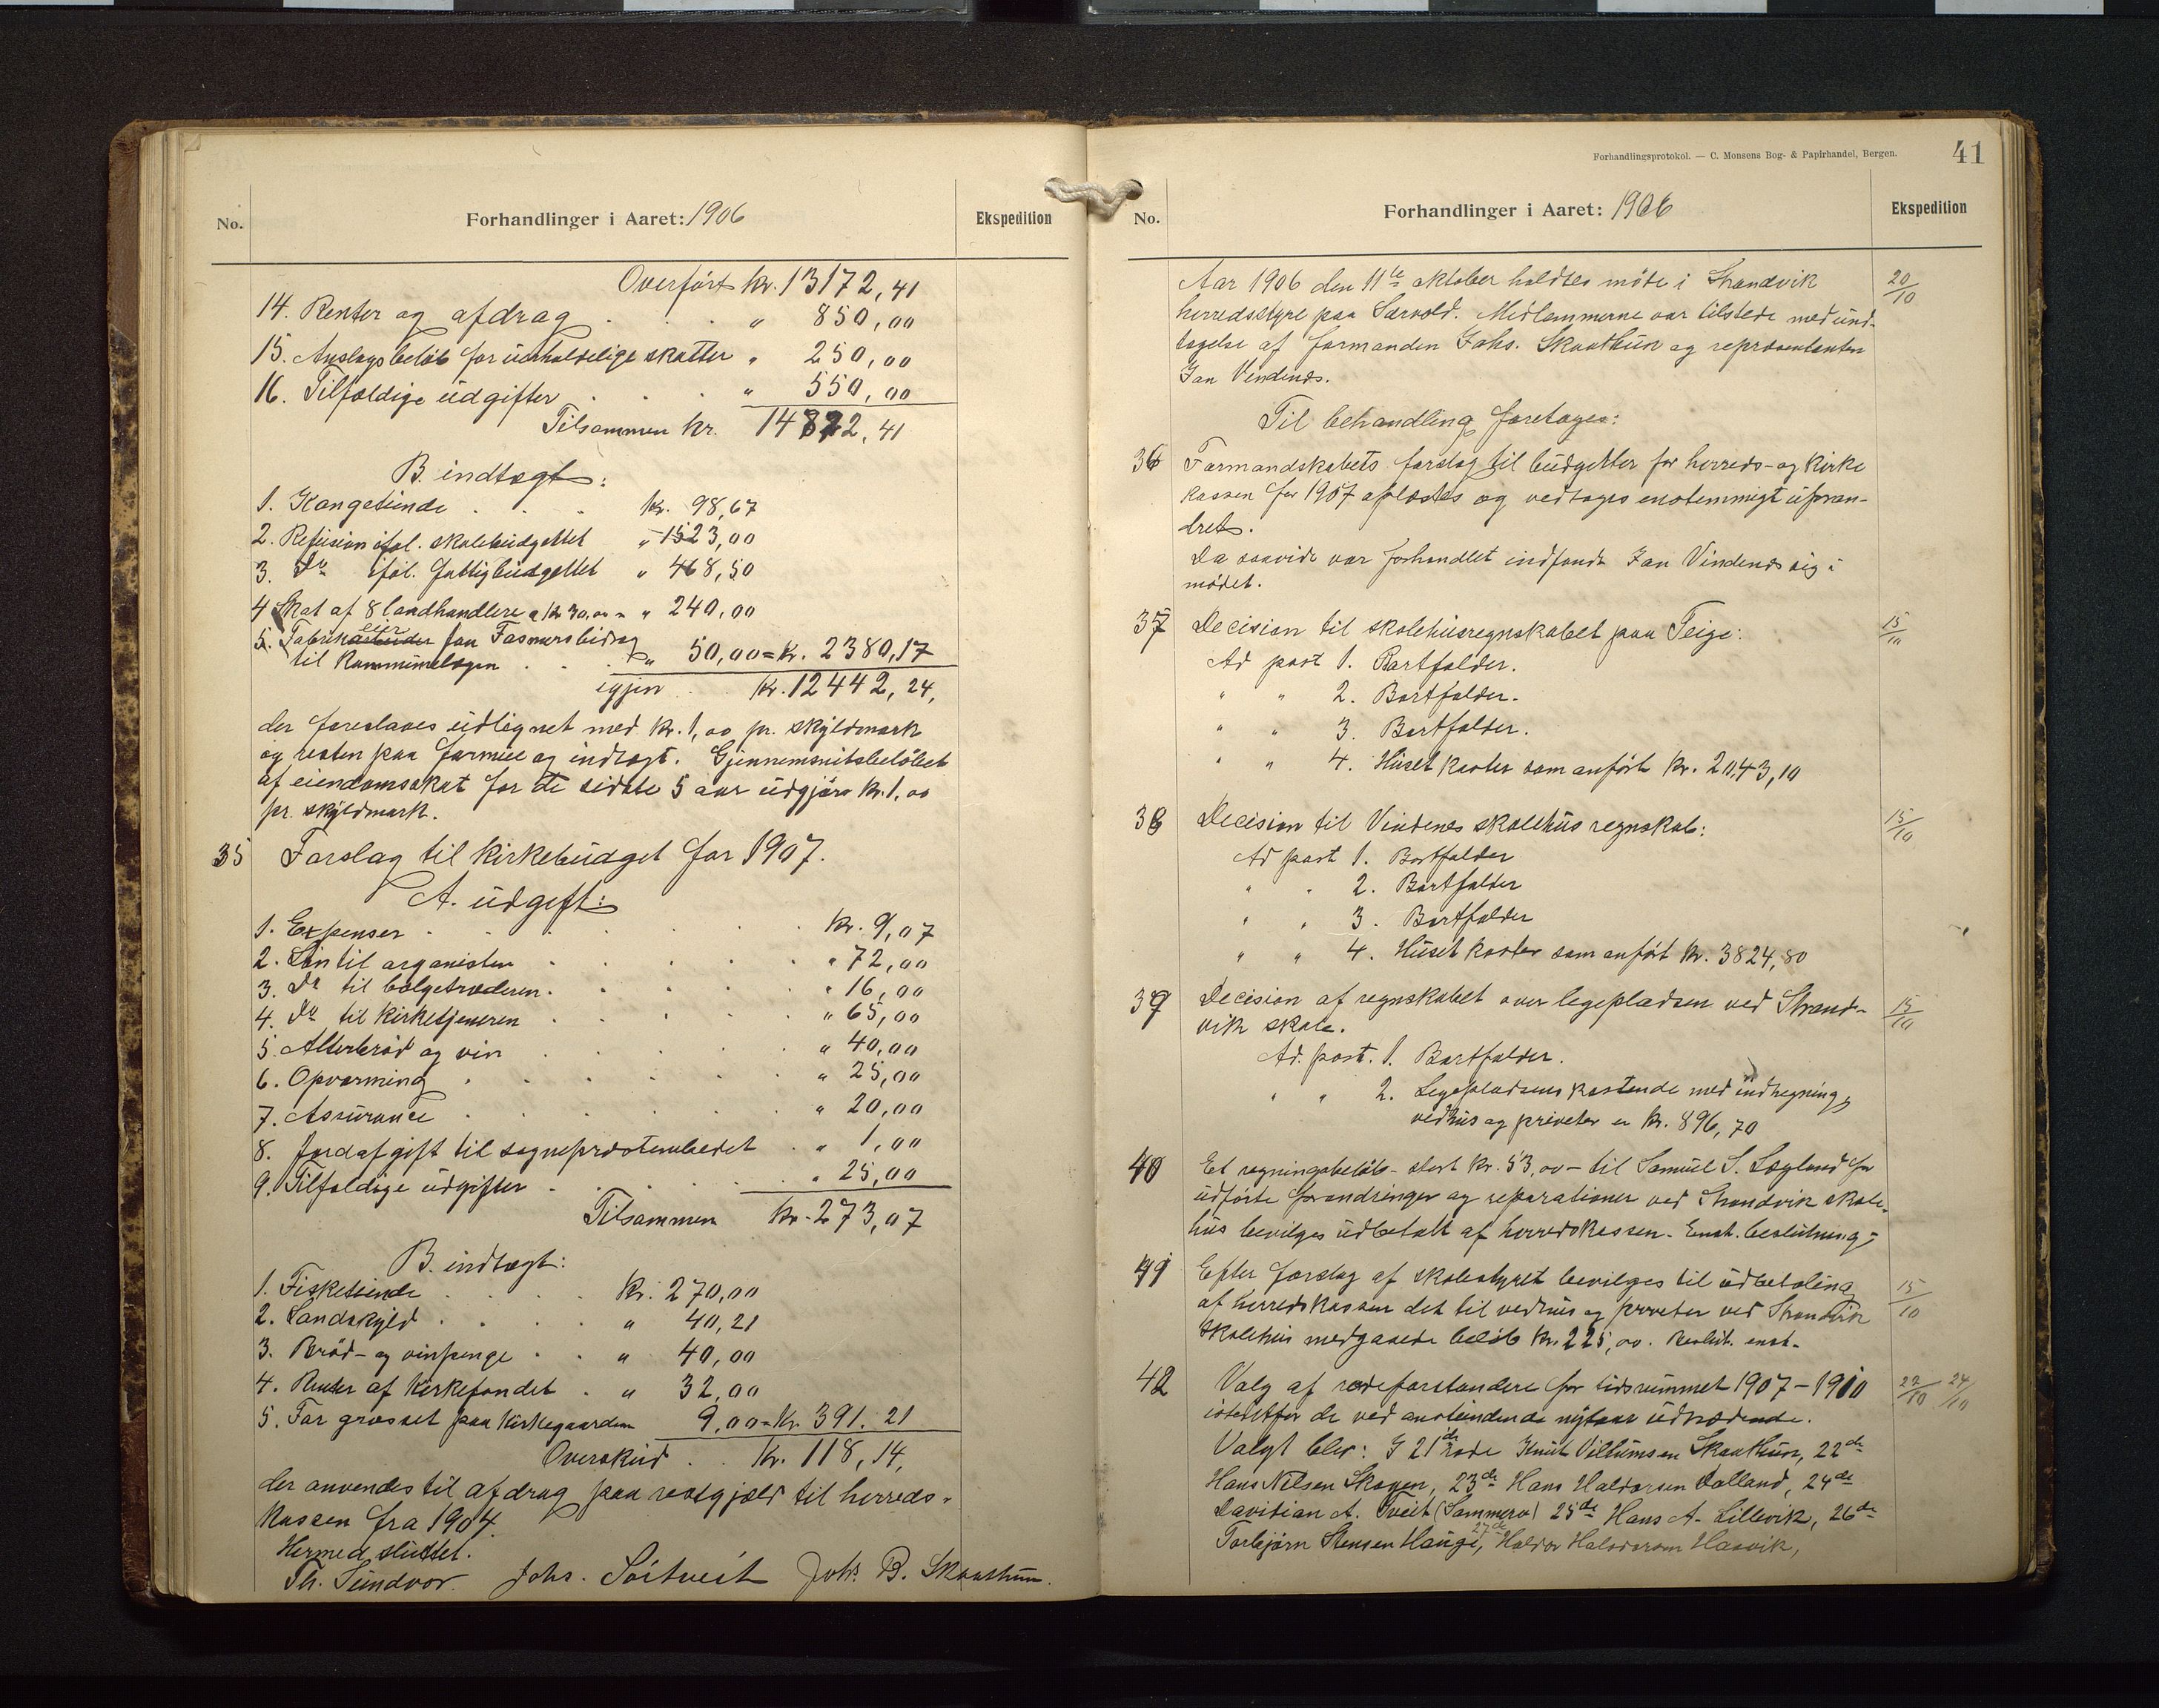 No.
Forhandlinger i Aaret: 1906
Ekspedition
Overført kr. 13172,41
14. Renter og afdrag . . . " 850,00
15. Anslagsbeløb for uerholdelige skatter " 250,00
16. Tilfældige udgifter . . . " 550,00
Tilsammen kr. 14822,41
B. indtægt:
1. Kongetiende . . . kr. 98,67
2. Refusion iføl. skolebudgettet " 1523,00
3. Do iføl. fattigbudgettet " 468,50
4 Skat af 8 landhandlere a kr 30,00 = " 240,00
5. Fabrikeier paa Fasmers bidrag
til kommunelægen . . . " 50,00 = kr. 2380,17
igjen . . kr. 12442,24,
der foreslaaes udlignet med kr. 1,00 pr. skyldmark
og resten paa formue og indtægt. Gjennemsnitsbeløbet
af eiendomsskat for de sidste 5 aar udgjør kr. 1,00
pr. skyldmark.
35 Forslag til kirkebudget for 1907.
A. udgift:
1. Expenser . . . kr. 9,07
2. Løn til organisten . . . " 72,00
3. Do til bølgetræderen . . . " 16,00
4. Do til kirketjeneren . . . " 65,00
5. Alterbrød og vin . . . " 40,00
6. Opvarming . . . " 25,00
7. Assurance . . . " 20,00
8. Jordafgift til sognepræstembedet . " 1,00
9. Tilfældige udgifter . . . " 25,00
Tilsammen kr. 273,07
B. indtægt:
1. Fisketiende . . . kr. 270,00
2. Landskyld . . . " 40,21
3. Brød- og vinpenge . . " 40,00
4. Renter af kirkefondet . " 32,00
5. For græsset paa kirkegaarden 9,00 = kr. 391.21
Overskud . . kr. 118,14,
der anvendes til afdrag paa restgjæld til herreds-
kassen fra 1904.
Hermed sluttet.
Th. Sundvor. Johs. Söitveit Johs B. Skaathun.
Forhandlingsprotokol. — C. Monsens Bog- & Papirhandel, Bergen.
41
No.
Forhandlinger i Aaret: 1906
Ekspedition
Aar 1906 den 11te oktober holdtes møte i Strandvik 20/10
herredsstyre paa Sævold. Medlemmerne var tilstede med und-
tagelse af formanden Johs. Skaathun og repræsentanten
Jan Vindenes.
Til behandling foretoges:
36 Formandskabets forslag til budgetter for herreds- og kirke
kassen for 1907 oplæstes og vedtoges enstemmigt uforan-
dret.
Da saavidt var forhandlet indfandt Jan Vindenes sig i
mødet.
37 Decision til skolehusregnskabet paa Teige: 15/10
Ad post 1. Bortfalder.
" " 2. Bortfalder.
" " 3. Bortfalder.
" " 4. Huset koster som anført kr. 2043,10
38 Decision til Vindenes skolehus regnskab: 15/10
Ad post 1. Bortfalder
" " 2. Bortfalder
" " 3. Bortfalder
" " 4. Huset koster som anført kr. 3824,80
39 Decision af regnskabet over legepladsen ved Strand- 15/10
vik skole.
Ad. post. 1. Bortfalder.
" " 2. Legepladsens kostende med indhegning,
vedhus og priveter er kr. 896,70
40 Et regningsbeløb - stort kr. 53,00 - til Samuel S. Lægland for
udførte forandringer og reparationer ved Strandvik skole-
hus bevilges udbetalt af herredskassen. Enst. beslutning.
41 Efter forslag af skolestyret bevilges til udbetaling 15/10
af herredskassen det til vedhus og priveter ved Strandvik
skolehus medgaaede beløb kr. 225,00. Beslut. enst.
42 Valg af rodeforstandere for tidsrummet 1907 - 1910 22/10 24/10
istedetfor de ved anstundende nytaar udtrædende.
Valgt blev: I 21de rode Knut Villumsen Skaathun, 22de
Hans Nilsen Skogen, 23de Hans Haldorsen Dalland, 24de
Davidian A. Tveit (Sammerv) 25de Hans A. Lillevik, 26de
Torbjørn Stensen Hauge, 27de Haldor Haldorsen Haavik,